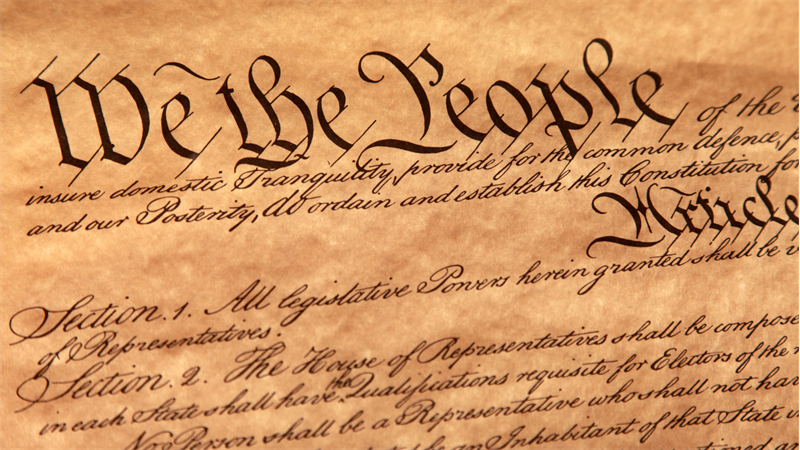 We the People of the
insure domestic Tranquility, provide for the common defence,
and our Posterity, do ordain and establish this Constitution for
Article
Section. 1. All legislative Powers herein granted shall be
of Representatives.
Section. 2. The House of Representatives shall be compose
in each State shall have the Qualifications requisite for Electors of the
No Person shall be a Representative who shall not hav
an Inhabitant of that State